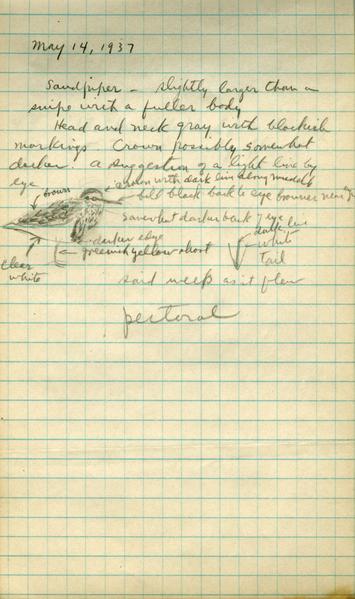 May 14, 1937
Sandpiper - slightly larger than a
snipe with a fuller body
Head and neck gray with blackish
markings Crown possibly somewhat
darker. A suggestion of a light line by
eye
brown with dark line along middle
brown
bill black back to eye browner near
somewhat darker back of eye
dark line
darker edge
white
greenish yellow short
tail
clear
white
said weep as it flew
pectoral